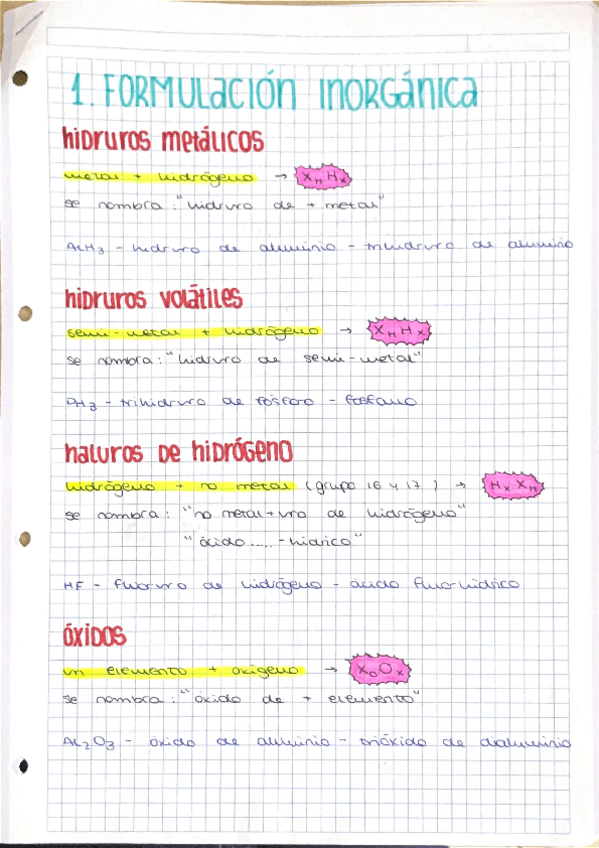 1. FORMULACIÓN INORGÁNICA
HIDRUROS METÁLICOS
metal + hidrógeno → XHHX
se nombra: "hidruro de + metal"
AlH3 - hidruro de aluminio - trihidruro de aluminio
HIDRUROS VOLÁTILES
semi-metal + hidrógeno → XHHX
se nombra: "hidruro de semi-metal"
PH3 - trihidruro de fósforo - fosfano
HALUROS DE HIDRÓGENO
hidrógeno + no metal (grupo 16 y 17) → HXXH
se nombra: "no metal+uro de hidrógeno"
"ácido.....-hídrico"
HF - fluoruro de hidrógeno - ácido fluorhídrico
ÓXIDOS
un elemento + oxígeno → XOOX
se nombra: "óxido de + elemento"
Al2O3 - óxido de aluminio - trióxido de dialuminio